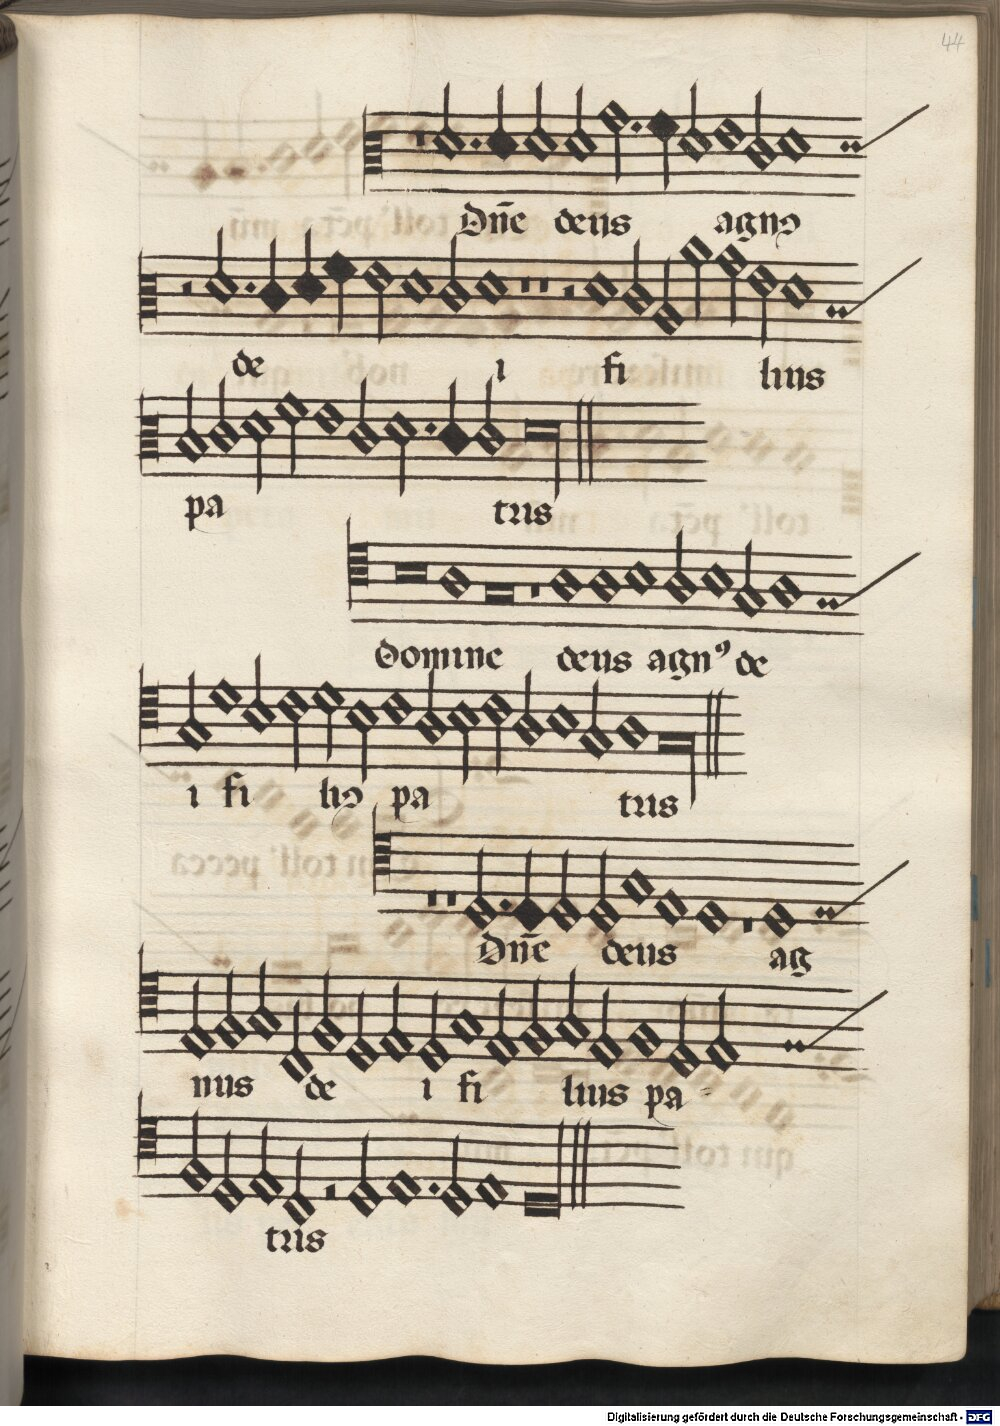 44
Dn̄e deus agnꝰ
de i fi lius
pa tris
Domine deus agnꝰ de
i fi liꝰ pa tris
Dn̄e deus ag
nus de i fi lius pa-
tris
Digitalisierung gefördert durch die Deutsche Forschungsgemeinschaft - DFG